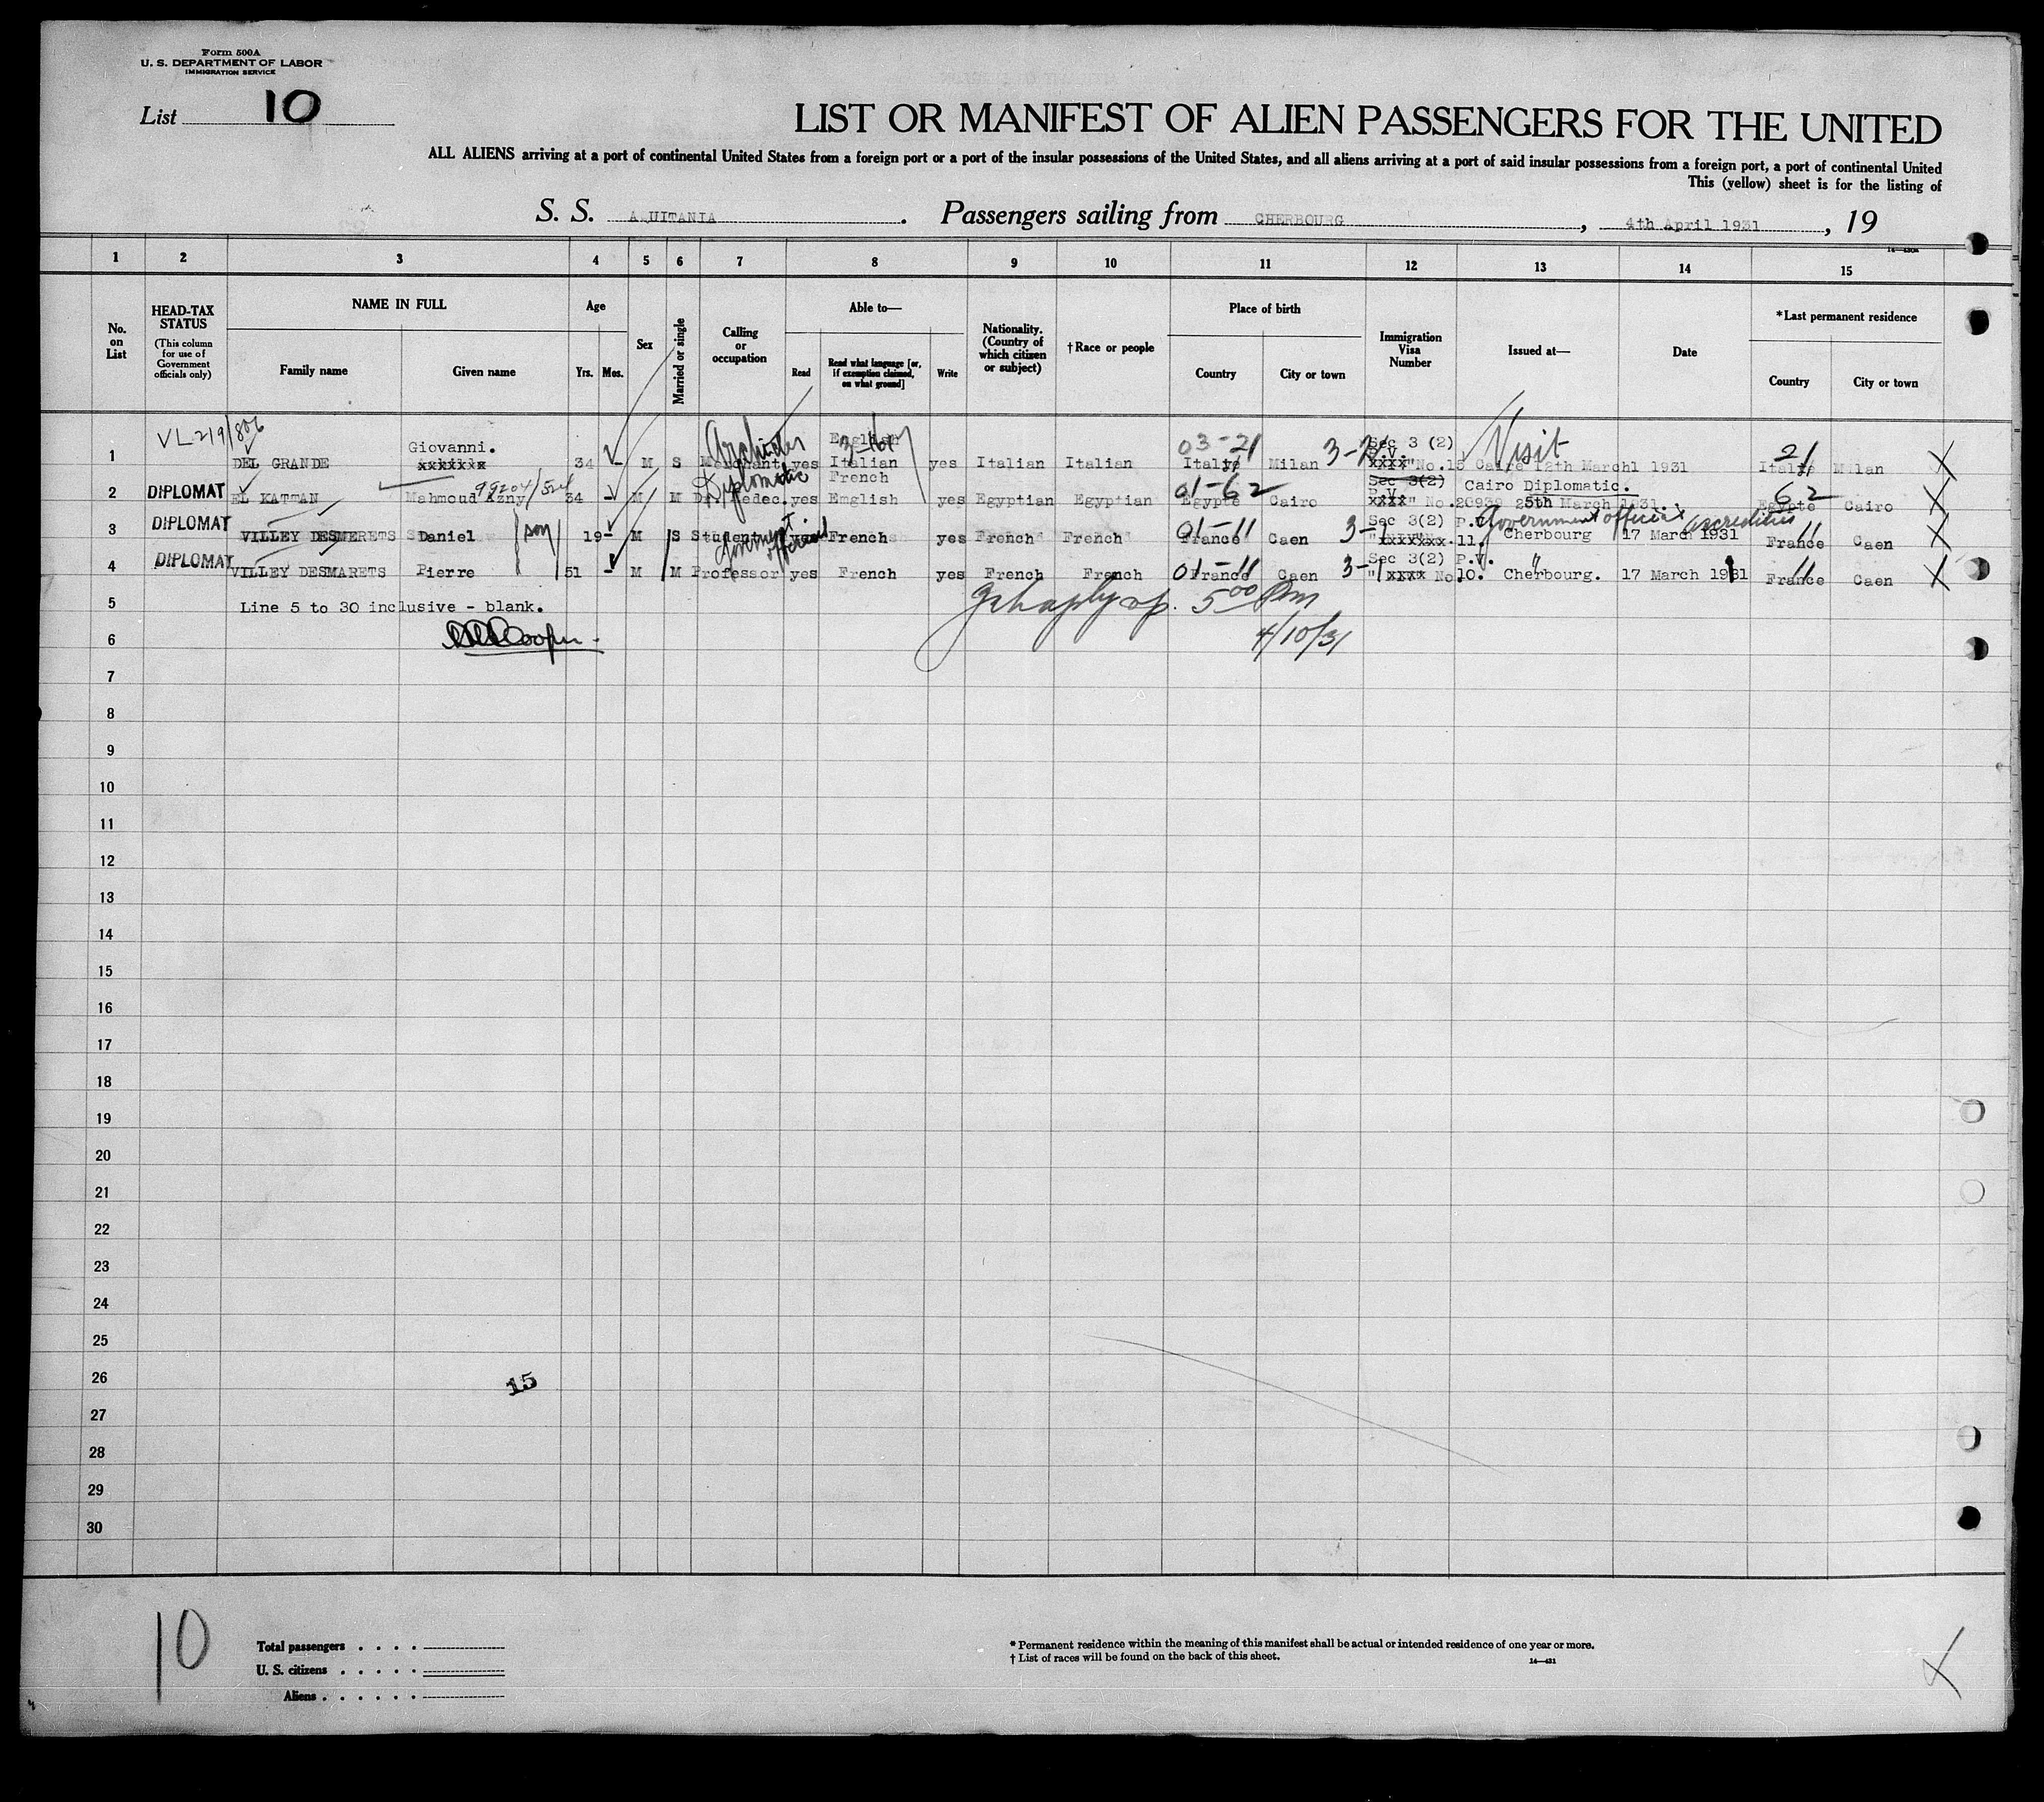 Form 500A
U. S. DEPARTMENT OF LABOR
IMMIGRATION SERVICE
List 10
LIST OR MANIFEST OF ALIEN PASSENGERS FOR THE UNITED
ALL ALIENS arriving at a port of continental United States from a foreign port or a port of the insular possessions of the United States, and all aliens arriving at a port of said insular possessions from a foreign port, a port of continental United
This (yellow) sheet is for the listing of
S. S. AQUITANIA. Passengers sailing from CHERBOURG, 4th April 1931, 19
1 2 3 4 5 6 7 8 9 10 11 12 13 14 15
No. on List
HEAD-TAX STATUS
(This column for use of Government officials only)
NAME IN FULL
Family name Given name
Age
Yrs. Mos.
Sex
Married or single
Calling or occupation
Able to—
Read Read what language [or, if exemption claimed, on what ground] Write
Nationality. (Country of which citizen or subject)
†Race or people
Place of birth
Country City or town
Immigration Visa Number
Issued at—
Date
*Last permanent residence
Country City or town
VL 219/806 Giovanni. 3-161 English 03-21 3-21 Sec 3 (2) Visit 21
1 DEL GRANDE 34 - M S Merchant yes Italian yes Italian Italian Italy Milan No.15 Cairo 12th March 1931 Italy Milan X
99204/524 Diplomatic French 01-62 Sec 3(2) Cairo Diplomatic. 62
2 DIPLOMAT EL KATTAN Mahmoud Azny 34 - M M Dr. Medec. yes English yes Egyptian Egyptian Egypte Cairo P.V. No.26939 25th March 1931. Egypte Cairo X
3 DIPLOMAT VILLEY DESMERETS Daniel son 19 - M S Student yes French yes French French 01-11 France Caen 3- Sec 3(2) P.V. 11. Government official Cherbourg 17 March 1931 11 France Caen X
4 DIPLOMAT VILLEY DESMARETS Pierre 51 - M M Professor Government official yes French yes French French 01-11 France Caen 3- Sec 3(2) P.V. No. 10. Cherbourg. 17 March 1931 11 France Caen X
5 Line 5 to 30 inclusive - blank. 5 00 Pm
6 4/10/31
7
8
9
10
11
12
13
14
15
16
17
18
19
20
21
22
23
24
25
26 15
27
28
29
30
10
Total passengers
U. S. citizens
Aliens
* Permanent residence within the meaning of this manifest shall be actual or intended residence of one year or more.
† List of races will be found on the back of this sheet.
14—431
X